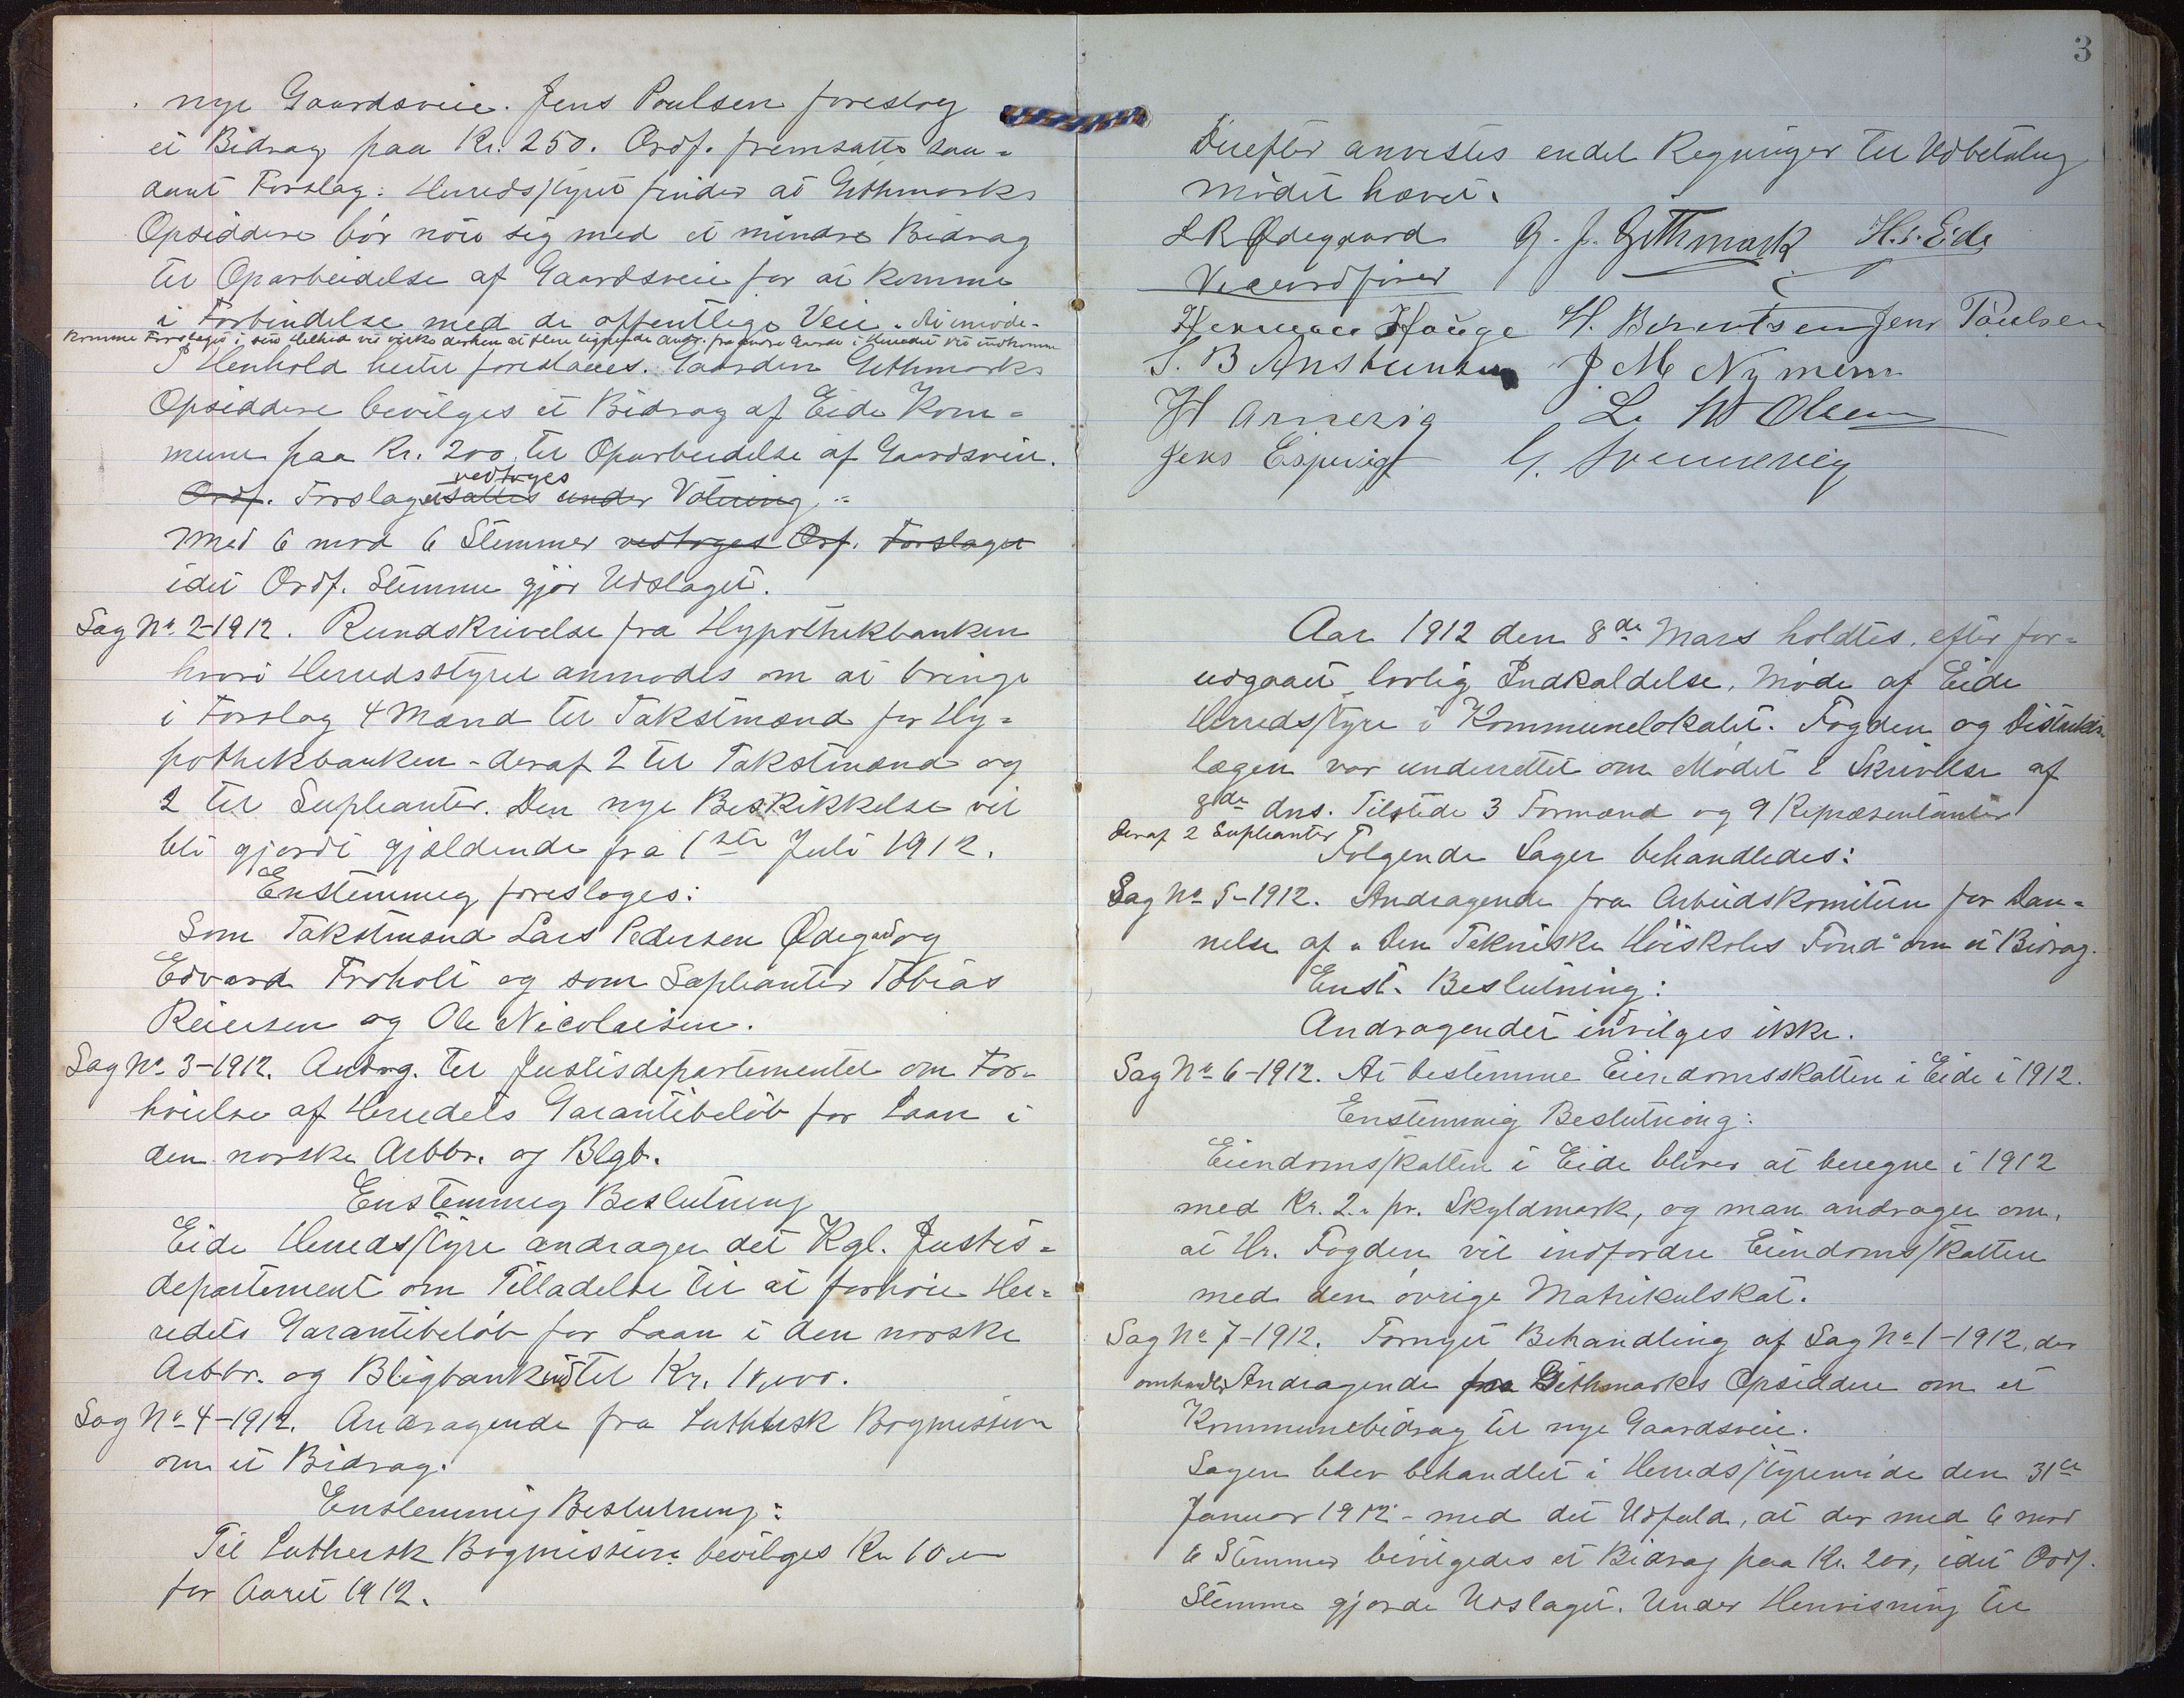 nye Gaardsveie. Jens Poulsen foreslog
et Bidrag paa Kr. 250. Ordf. fremsatte saa-
dant Forslag: Herredsstyret finder at Githmarks
Opsiddere bør nøie sig med et mindre Bidrag
til Oparbeidelse af Gaardsveie for at komme
i Forbindelse med de offentlige Veie. At imøde-
komme Forslaget i sin Helhed vil virke derhen at flere lignende Andr. fra andre Gaarde i Herredet vil indkomme
I Henhold hertil foreslaaes. Gaarden Githmarks
Opsiddere bevilges et Bidrag af Eide Kom-
mune paa Kr. 200 til Oparbeidelse af Gaardsveie.
vedtoges
Ordf. Forslaget sattes under Votering.
Med 6 mod 6 Stemmer vedtoges Orf. Forslaget
idet Ordf. Stemme gjør Udslaget.
Sag No 2-1912. Rundskrivelse fra Hypothekbanken
hvori Herredsstyret anmodes om at bringe
i Forslag 4 Mænd til Takstmænd for Hy-
pothekbanken - deraf 2 til Takstmænd og
2 til Supleanter. Den nye Beskikkelse vil
bli gjordt gjældende fra 1ste Juli 1912.
Enstemmig foresloges:
Som Takstmænd Lars Pedersen Ødegaard og
Edvard Froholt og som Supleanter Tobias
Reiersen og Ole Nicolaisen.
Sag No 3-1912. Andrg. til Justisdepartementet om For-
høielse af Herredets Garantibeløb for Laan i
den norske Arbbr. og Blgb.
Enstemmig Beslutning
Eide Herredsstyre andrager det Kgl. Justis-
departement om Tilladelse til at forhøie Her-
redets Garantibeløb for Laan i den norske
Arbbr. og Bligbank til Kr.
Sag No 4-1912. Andragende fra Luthersk Bogmission
om et Bidrag.
Enstemmig Beslutning:
Til Luthersk Bogmission bevilges Kr 10.
for Aaret 1912.
3
Derefter anvistes endel Regninger til Udbetaling
Mødet hævet.
L R Ødegaard G. J. Githmark H. . Eide
Viceordfører
Herman Hauge H. Berentsen Jens Poulsen
S. B J. M Nymenn
H Arnevig L. W Olsen
Jens Espevig G. Svennevig
Aar 1912 den 8de Mars holdtes, efter for-
udgaaet lovlig Indkaldelse, Møde af Eide
Herredsstyre i Kommunelokalet. Fogden og Distrikts-
lægen var underrettet om Mødet i Skrivelse af
8de dns. Tilstede 3 Formænd og 9 Repræsentanter
deraf 2 Supleanter
Følgende Sager behandledes:
Sag No 5-1912. Andragende fra Arbeidskomiteen for Dan-
nelse af "Den Tekniske Høiskoles Fond" om et Bidrag.
Enst. Beslutning:
Andragendet indvilges ikke.
Sag No 6-1912. At bestemme Eiendomsskatten i Eide i 1912.
Enstemmig Beslutning:
Eiendomsskatten i Eide bliver at beregne i 1912
med Kr. 2.- pr. Skyldmark, og man andrager om,
at Hr. Fogden vil indfordre Eiendomsskatten
med den øvrige Matrikulskat.
Sag No 7-1912. Fornyet Behandling af Sag No 1-1912, der
omhandler Andragende fra Githmarks Opsiddere om et
Kommunebidrag til nye Gaardsveie.
Sagen blev behandlet i Herredsstyremøde den 31te
Januar 1912 - med det Udfald, at der med 6 mod
6 Stemmer bevilgedes et Bidrag paa Kr. 200, idet Ordf.
Stemme gjorde Udslaget. Under Henvisning til